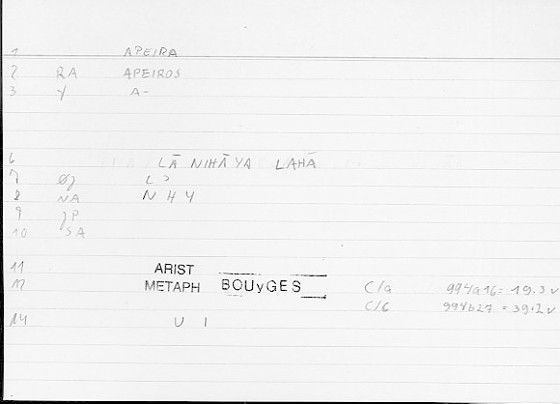 1 APEIRA
2 RA APEIROS
3 Y A-
6 LĀ NIHĀYA LAHĀ
7 Øj L Ɔ
8 NA N H Y
9 JP
10 SA
11 ARIST
12 METAPH BOUyGES C/a 994a16= 19.3 v
C/b 994b27 = 39.2 v
14 U I